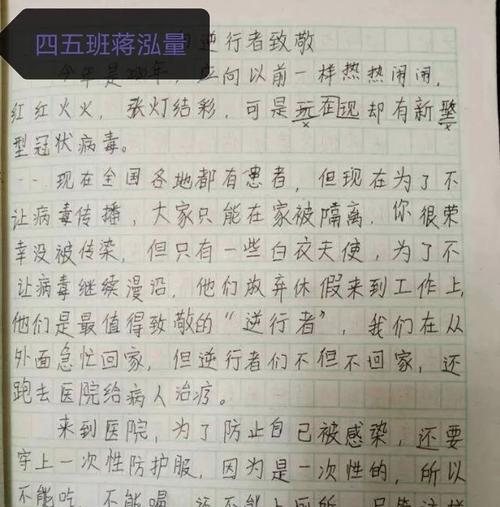 四五班蒋泓量
逆行者致敬
今年是2020年，应向以前一样热热闹闹，
红红火火，张灯结彩，可是玩在现却有新壂
型冠状病毒。
现在全国各地都有患者，但现在为了不
让病毒传播，大家只能在家被隔离，你很荣
幸没被传染，但只有一些白衣天使，为了不
让病毒继续漫沿，他们放弃休假来到工作上，
他们是最值得致敬的“逆行者”，我们在从
外面急忙回家，但逆行者们不但不回家，还
跑去医院给病人治疗。
来到医院，为了防止自己被感染，还要
穿上一次性防护服，因为是一次性的，所以
不能吃，不能喝，还不能上厕所，只靠这样